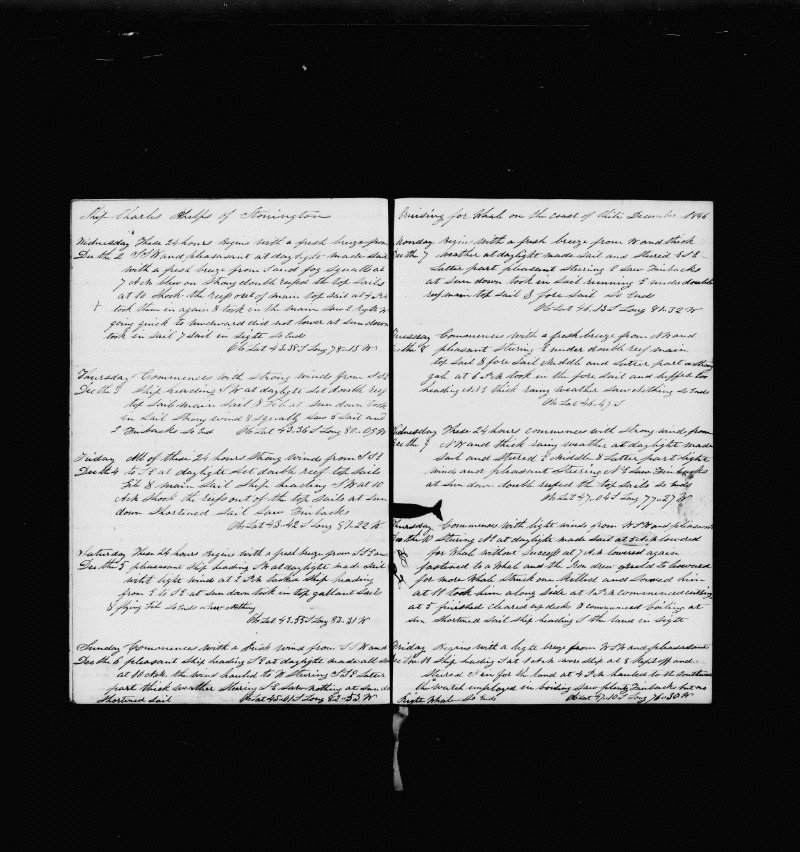 Ship Charles Phelps of Stonington
Wednesday These 24 hours begins with a fresh breeze from
Dec the 2 SSW and pleasant at daylight made sail
with a fresh breeze from S and fog squalls at
7 AM blew on strong double reefed the top sails
at 10 shook the reef out of main top sail at 4 PM
took them in again & took in the main sail saw 2
going quick to windward did not lower at sun down
took in sail 7 sail in sight So Ends
Ob Lat 43-38 S Long 78-15 W
Thursday Commences with strong winds from SSE
Dec the 3 Ship heading SW at daylight set double reef
top sails main sail & Jib at sun down took
in sail strong wind & squally saw 5 sail and
2 Finbacks So End Ob Lat 43-36 S Long 80-09 W
Friday All of these 24 hours strong wind from SSE
Dec the 4 to SE at daylight set double reef top sails
Jib & main sail Ship heading SW at 10
AM shook the reefs out of the top sails at sun
down shortened sail saw Finbacks
Ob Lat 43-42 S Long 81-22 W
Saturday These 24 hours begins with a fresh breeze from SSE and
Dec the 5 pleasant ship heading SW at daylight made sail
with light winds at 2 PM tacked ship heading
from E to SE at sun down took in top gallant sail
& flying Jib So Ends saw nothing
Ob Lat 43-55 S Long 83-31 W
Sunday Commences with a brisk wind from SSW and
Dec the 6 pleasant ship heading SE at daylight made all sail
at 10 AM the wind hauled to W steering SSE Latter
part thick weather steering SE saw nothing at sun down
shortened sail Ob Lat 45-01 S Long 82-53 W
Cruising for Whale on the coast of Chili December 1846
Monday begins with a fresh breeze from W and thick
Dec the 7 weather at daylight made sail and steered ESE
Latter part pleasant steering E saw Finbacks
at sun down took in sail running E under double
reef main top sail & fore sail So Ends
Ob Lat 46-13 S Long 81-32 W
Tuesday Commences with a fresh breeze from NW and
Dec the 8 pleasant steering E under double reef main
top sail & fore sail Middle and Latter part a strong
gale at 6 PM took in the fore sail and luffed too
heading NNE thick rainy weather saw nothing So Ends
Ob Lat 46-47 S
Wednesday These 24 hours commences with strong wind from
Dec the 9 NW and thick rainy weather at daylight made
sail and steered E Middle & Latter part light
wind and pleasant steering NE saw Finbacks
at sun down double reefed the top sails So Ends
Ob Lat 47-04 S Long 77-27 W
Thursday Commences with light winds from WSW and pleasant
Dec the 10 steering NE at daylight made sail at lowered
for Whale without success at 7 AM lowered again
fastened to a Whale and the Iron drew
for more Whale struck one killed and saved him
at 11 took him along side at 1 PM commenced cutting
at 5 finished cleared up decks & commenced boiling at
sun shortened sail ship heading S the land in sight
Friday Begins with a light breeze from WSW and pleasant
Dec the 11 Ship heading S at 1 AM wore ship at 8 kept off and
steered S in for the land at 4 PM hauled to the southward
the watch employed in boiling saw plenty Finbacks but no
Right Whale So Ends Ob Lat 47-10 S Long 76-30 W